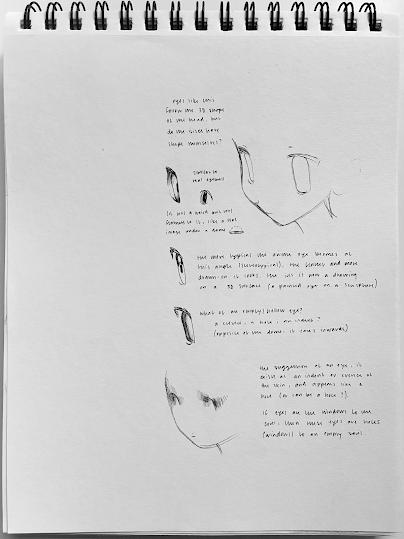 eyes like this
follow the 3D shape
of the head, but
do the irises have
shape themselves?
similar to
real eyeball
is it a weird and not
symmetric iris, like a flat
image under a dome
the more typical the anime eye becomes at
this angle (stereotypical), the flatter and more
drawn-on it looks. the iris is now a drawing
on a 3D surface (a painted eye on a sculpture)
what of an empty/hollow eye?
a cavity, a hole, an indent?
(opposite of the dome, it caves inwards)
the suggestion of an eye, it
exists as an indent or crevice of
the skin, and appears like a
hole (or can be a hole?).
if eyes are the windows to the
soul, then these eyes are holes
(windows) to an empty soul.